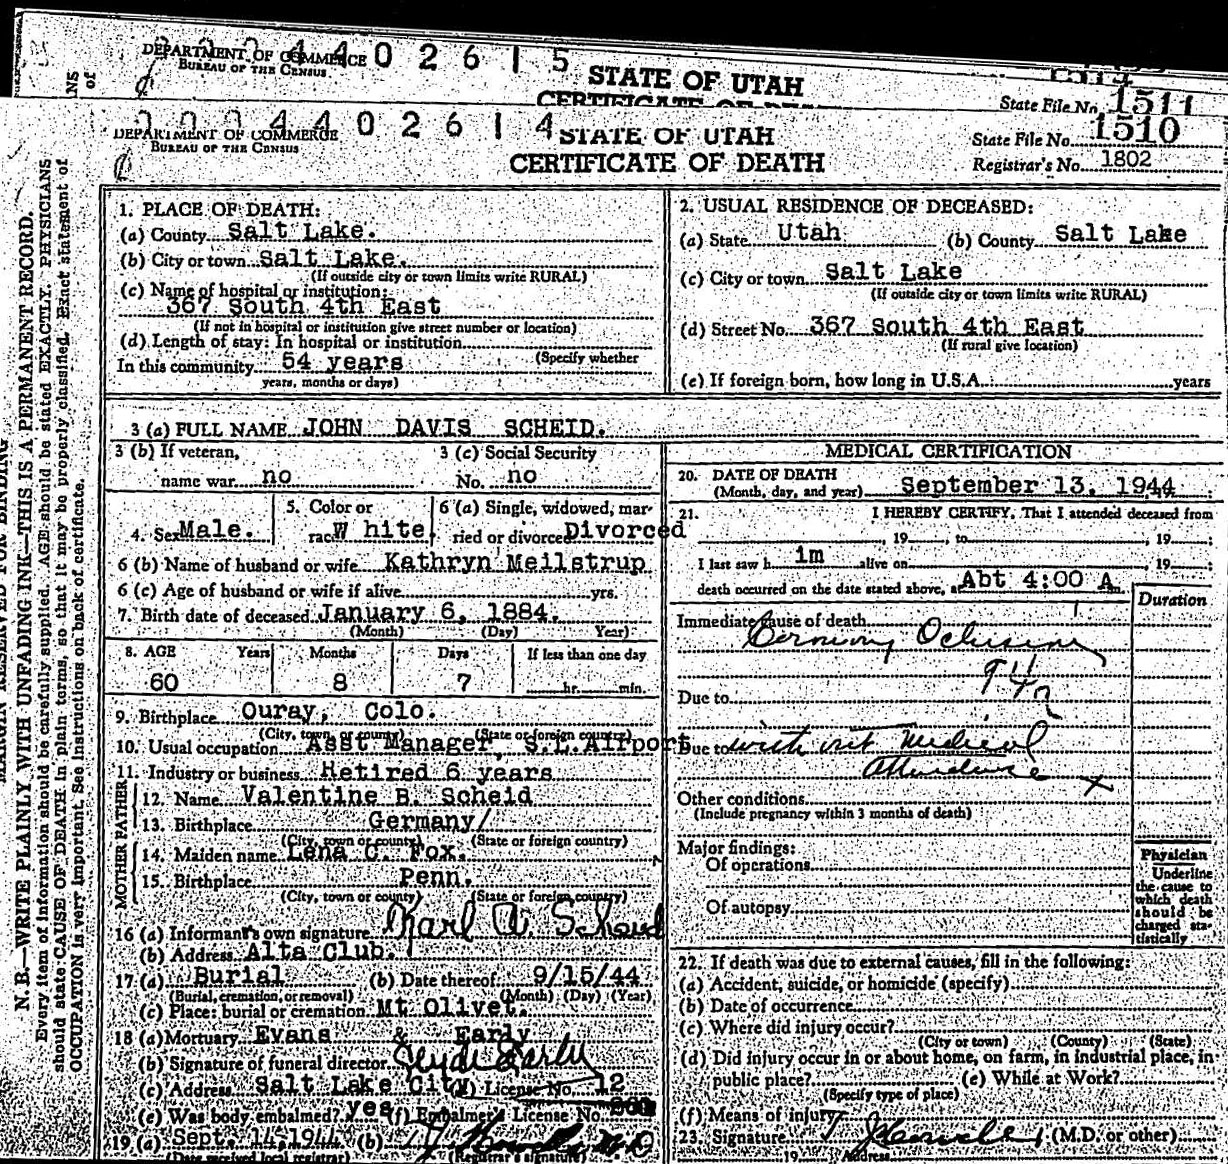 DEPARTMENT OF COMMERCE
BUREAU OF THE CENSUS
4 4 0 2 6 1 5
STATE OF UTAH
CERTIFICATE OF DEATH
State File No. 1511
DEPARTMENT OF COMMERCE
BUREAU OF THE CENSUS
4 4 0 2 6 1 4
STATE OF UTAH
CERTIFICATE OF DEATH
State File No. 1510
Registrar's No. 1802
N. B.—WRITE PLAINLY, WITH UNFADING INK—THIS IS A PERMANENT RECORD.
Every item of information should be carefully supplied. AGE should be stated EXACTLY. PHYSICIANS
should state CAUSE OF DEATH in plain terms, so that it may be properly classified. Exact statement of
OCCUPATION is very important. See instructions on back of certificate.
1. PLACE OF DEATH:
(a) County Salt Lake.
(b) City or town Salt Lake.
(If outside city or town limits write RURAL)
(c) Name of hospital or institution:
367 South 4th East
(If not in hospital or institution give street number or location)
(d) Length of stay: In hospital or institution
(Specify whether
In this community 54 years
years, months or days)
2. USUAL RESIDENCE OF DECEASED:
(a) State Utah (b) County Salt Lake
(c) City or town Salt Lake
(If outside city or town limits write RURAL)
(d) Street No. 367 South 4th East
(If rural give location)
(e) If foreign born, how long in U.S.A. years
3 (a) FULL NAME JOHN DAVIS SCHEID.
3 (b) If veteran, 3 (c) Social Security
name war no No. no
4. Sex Male. 5. Color or race W hite 6 (a) Single, widowed, mar-
ried or divorced Divorced
6 (b) Name of husband or wife Kathryn Meilstrup
6 (c) Age of husband or wife if alive yrs.
7. Birth date of deceased January 6, 1884.
(Month) (Day) Year)
8. AGE Years Months Days If less than one day
60 8 7 hr. min.
9. Birthplace Ouray, Colo.
(City, town, or county) (State or foreign country)
10. Usual occupation Asst Manager, S.L. Airport
11. Industry or business Retired 6 years
FATHER
12. Name Valentine B. Scheid
13. Birthplace Germany/
(City, town or county) (State or foreign country)
MOTHER
14. Maiden name Lena C. Fox.
15. Birthplace Penn.
(City, town or county) (State or foreign country)
16 (a) Informant's own signature Karl A Scheid
(b) Address Alta Club.
17 (a) Burial (b) Date thereof 9/15/44
(Burial, cremation, or removal) (Month) (Day) (Year)
(c) Place: burial or cremation Mt Olivet.
18 (a) Mortuary Evans & Early
(b) Signature of funeral director Clyde Early
(c) Address Salt Lake City (d) License No. 12
(e) Was body embalmed? yes (f) Embalmer's License No.
19 (a) Sept. 14, 1944 (b)
(Date received local registrar) (Registrar's signature)
MEDICAL CERTIFICATION
20. DATE OF DEATH
(Month, day, and year) September 13, 1944
21. I HEREBY CERTIFY, That I attended deceased from
, 19 , to , 19 ;
I last saw h im alive on , 19 ;
death occurred on the date stated above, at Abt 4:00 A m.
Duration
Immediate cause of death
Coronary Oclusion
94a
Due to
Due to with out Medical
Attendance x
Other conditions
(Include pregnancy within 3 months of death)
Major findings:
Of operations
Of autopsy
Physician
Underline
the cause to
which death
should be
charged sta-
tistically
22. If death was due to external causes, fill in the following:
(a) Accident, suicide, or homicide (specify)
(b) Date of occurrence
(c) Where did injury occur?
(City or town) (County) (State)
(d) Did injury occur in or about home, on farm, in industrial place, in
public place? (e) While at Work?
(Specify type of place)
(f) Means of injury
23. Signature (M.D. or other)
19 Address